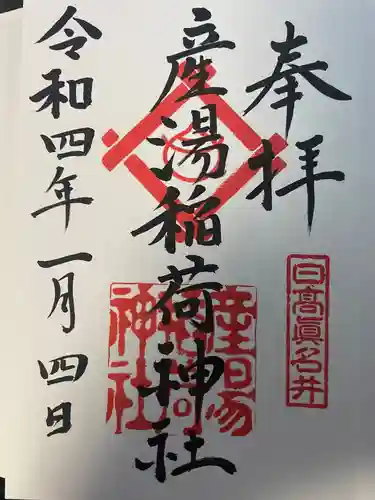 奉拝
日高真名井
産湯稲荷神社
産湯稲荷神社
令和四年一月四日